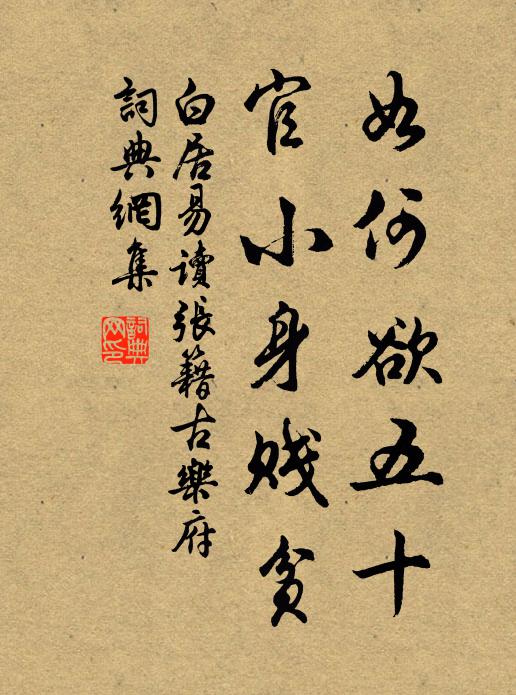 如何欲五十
官小身賤貧
白居易讀張籍古樂府
詞典網集
詞典網印